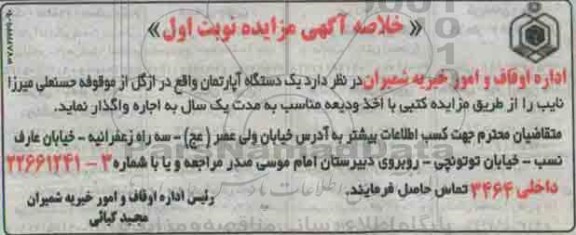 « خلاصه آگهی مزایده نوبت اول »
اداره اوقاف و امور خیریه شمیران در نظر دارد یک دستگاه آپارتمان واقع در ازگل از موقوفه حسنعلی میرزا
نایب را از طریق مزایده کتبی با اخذ ودیعه مناسب به مدت یک سال به اجاره واگذار نماید.
متقاضیان محترم جهت کسب اطلاعات بیشتر به آدرس خیابان ولی عصر (عج) - سه راه زعفرانیه - خیابان عارف
نسب - خیابان توتونچی - روبروی دبیرستان امام موسی صدر مراجعه و یا با شماره ۳ - ۲۲۶۶۱۲۴۱
داخلی ۳۴۶۴ تماس حاصل فرمایند.
رئیس اداره اوقاف و امور خیریه شمیران
مجید کیائی